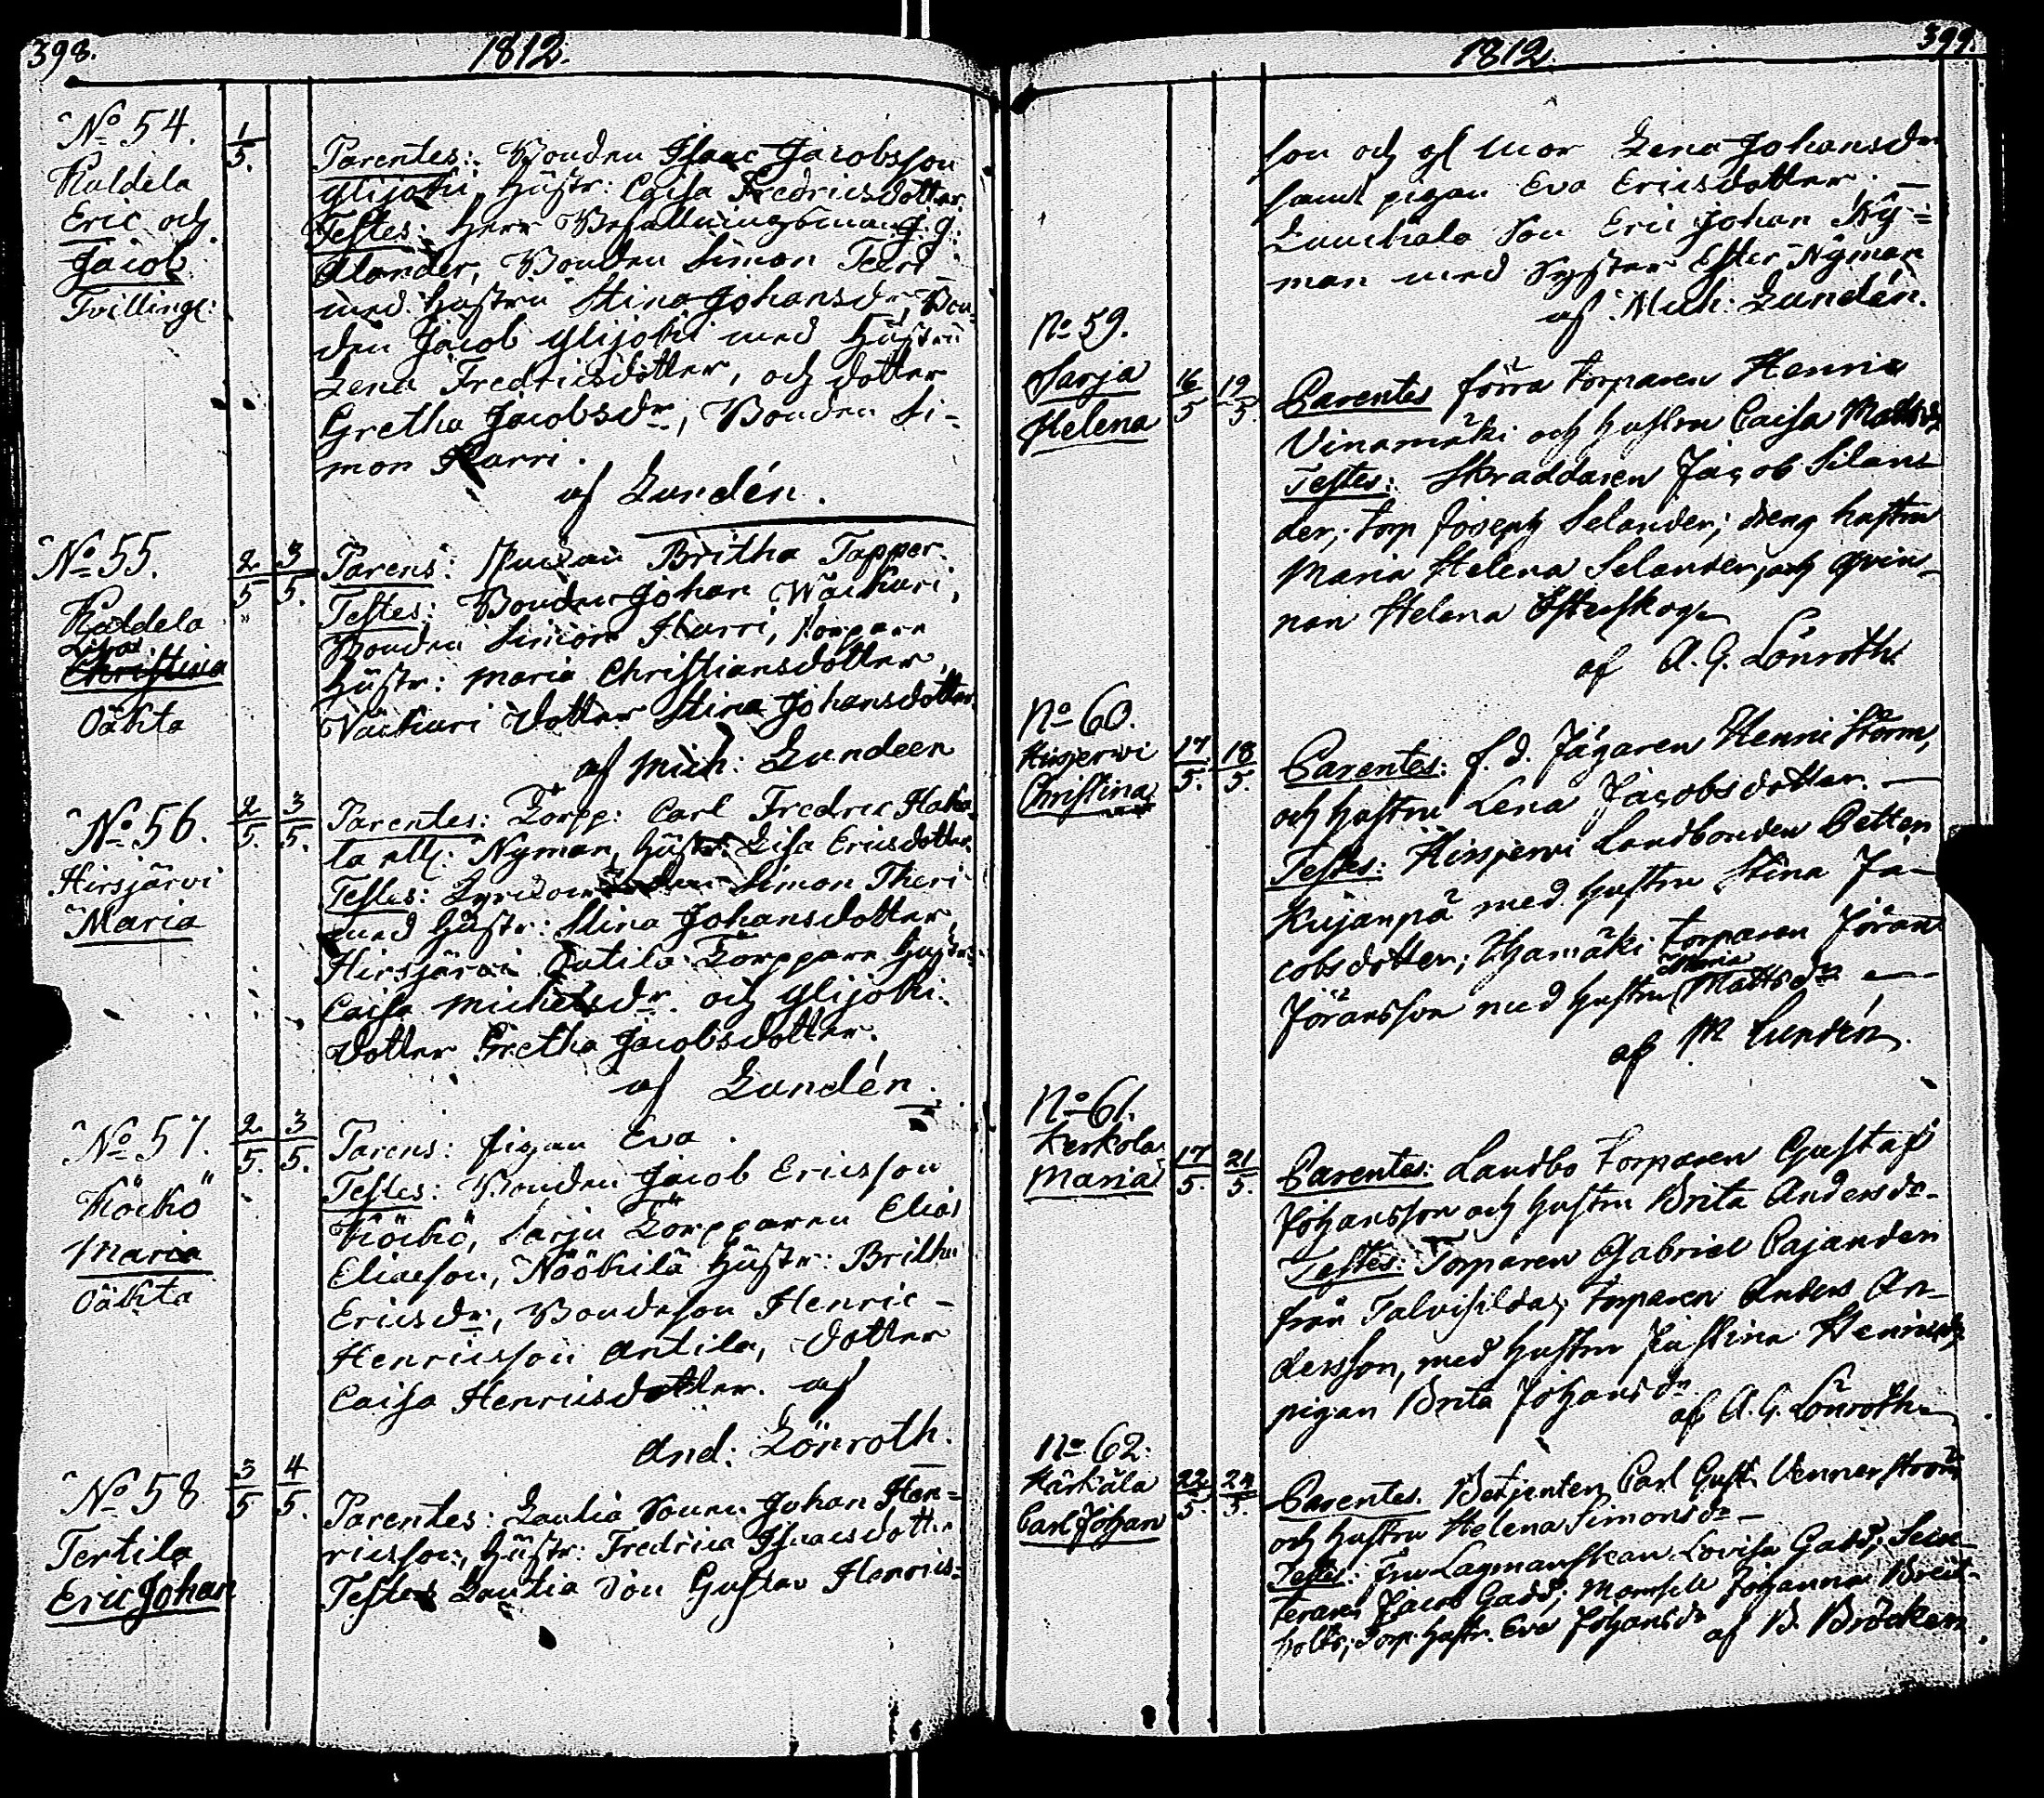 398.
1812.
No 54.
1/5.
Kuldela
Eric och
Jacob
Tvilling:
Parentes: Bonden Isaac Jacobsson
Ylijoki, Hustr: Caisa Fredricsdotter.
Testes: Herr Befallningsman J. G.
Alander, Bonden Simon Teeri
med hustru Stina Johansdr, Bon-
den Jacob Ylijoki med Hustru
Lena Fredricsdotter, och dotter
Gretha Jacobsdr, Bonden Si-
mon Harri.
af Lundén.
No 55.
2/5 3/5.
Kuldela
Lisa
Christina
Oäkta
Parens: Britha Tapper.
Testes: Bonden Johan Wäckari,
Bonden Simon Harri, Torpare
Hustr: Maria Christiansdotter,
Wäckari dotter Stina Johansdotter
af Mich: Lundeen
No 56.
2/5. 3/5.
Hirsjärvi
Maria
Parentes: Torpp: Carl Fredric Haka
la Nyman, Hustr: Lisa Ericsdotter.
Testes: Simon Theri
med Hustr: Stina Johansdotter,
Hirsjärvi Outila Torppare Hustr:
Caisa Michelsdr. och Ylijoki
dotter Gretha Jacobsdotter.
af Lundén.
No 57.
2/5. 3/5.
Köckö
Maria
Oäkta
Parens: Pigan Eva.
Testes: Bonden Jacob Ericsson
Köckö, Sarju Torpparen Elias
Eliaeson, Nöökilä Hustr: Britha
Ericsdr, Bondeson Henric
Henricsson Antila, dotter
Caisa Henricsdotter. af
And: Lönroth.
No 58
3/5 4/5.
Tertila
Eric Johan
Parentes: Lautia Sonen Johan Hen-
ricsson, Hustr: Fredrica Isaacsdotter
Testes Lautia Son Gustav Henrics-
1812.
399.
son och gl mor Lena Johansdr
samt pigan Eva Ericsdotter. —
son Eric Johan Ny-
man med Syster Ester Nyman
af Mich: Lundén.
No 59.
Sarja
Helena
16/5 19/5.
Parentes förra torparen Henric
Vinamäki och hustru Caisa Mattsdr
Testes: Skraddaren Jacob Silan-
der, torp Joseph Selander; dreng hustru
Maria Helena Selander, och qvin-
nan Helena Österskog
af A. G. Lönroth.
No 60.
Hirsjerwi
Christina
17/5. 18/5.
Parentes: f. d. Jägaren Henric Storm,
och hustru Lena Jacobsdotter. —
Testes: Hirsjerwi Landbonden Petter
Kujanpä med hustru Stina Ja-
cobsdotter; torparen Jöran
Maria
Jöransson med hustru Mattsdr —
af M Lundén.
No 61.
Kerkola
Maria
17/5. 21/5.
Parentes: Landbo torparen Gustaf
Johansson och hustru Brita Andersdr.
Testes: Torparen Gabriel Cajander
från Talvisilda, torparen Anders An-
dersson, med hustru Justina Henricsdr
pigan Brita Johansdr
af A. G. Lönroth.
No 62.
Härkälä
Carl Johan
22/5. 24/5.
Parentes. Betjenten Carl Gust. Vennerström
och hustru Helena Simonsdr —
Testes: Fru Lagmanskan Lovisa Gadd,
Jacob Gadd; Mamsell Johanna Breit-
holtz; Torp. hustr. Eva Johansdr af B. Bröcker.